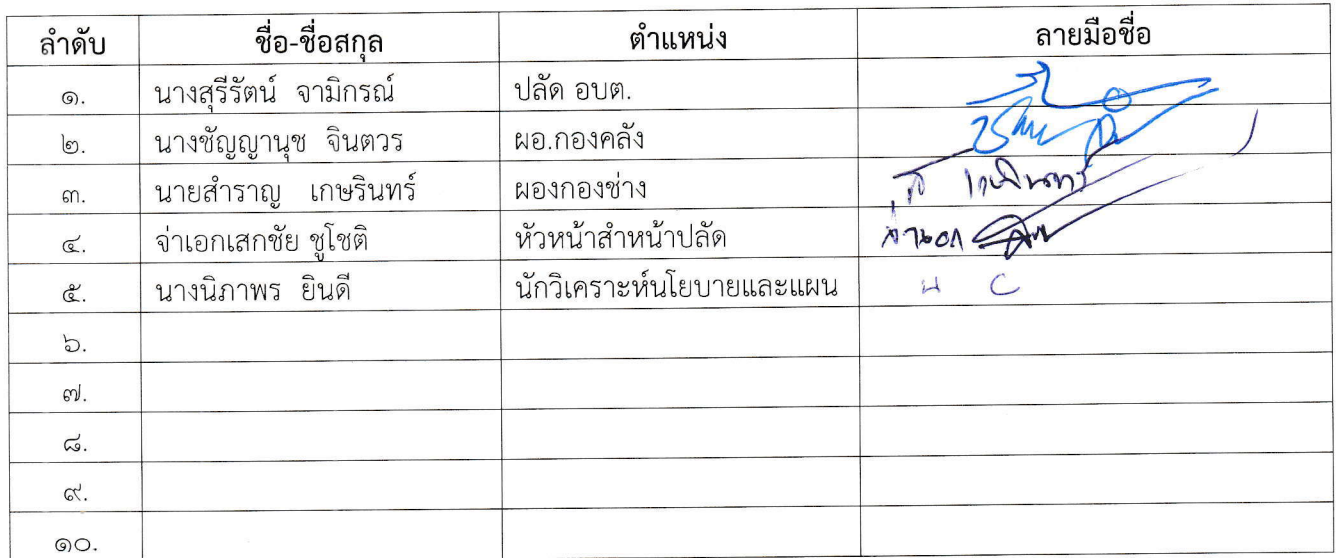 ลำดับ ชื่อ-ชื่อสกุล ตำแหน่ง ลายมือชื่อ
๑. นางสุรีรัตน์ จามิกรณ์ ปลัด อบต.
๒. นางชัญญานุช จินตวร ผอ.กองคลัง
๓. นายสำราญ เกษรินทร์ ผองกองช่าง เกษรินทร์
๔. จ่าเอกเสกชัย ชูโชติ หัวหน้าสำหน้าปลัด จ่าเอก
๕. นางนิภาพร ยินดี นักวิเคราะห์นโยบายและแผน
๖.
๗.
๘.
๙.
๑๐.